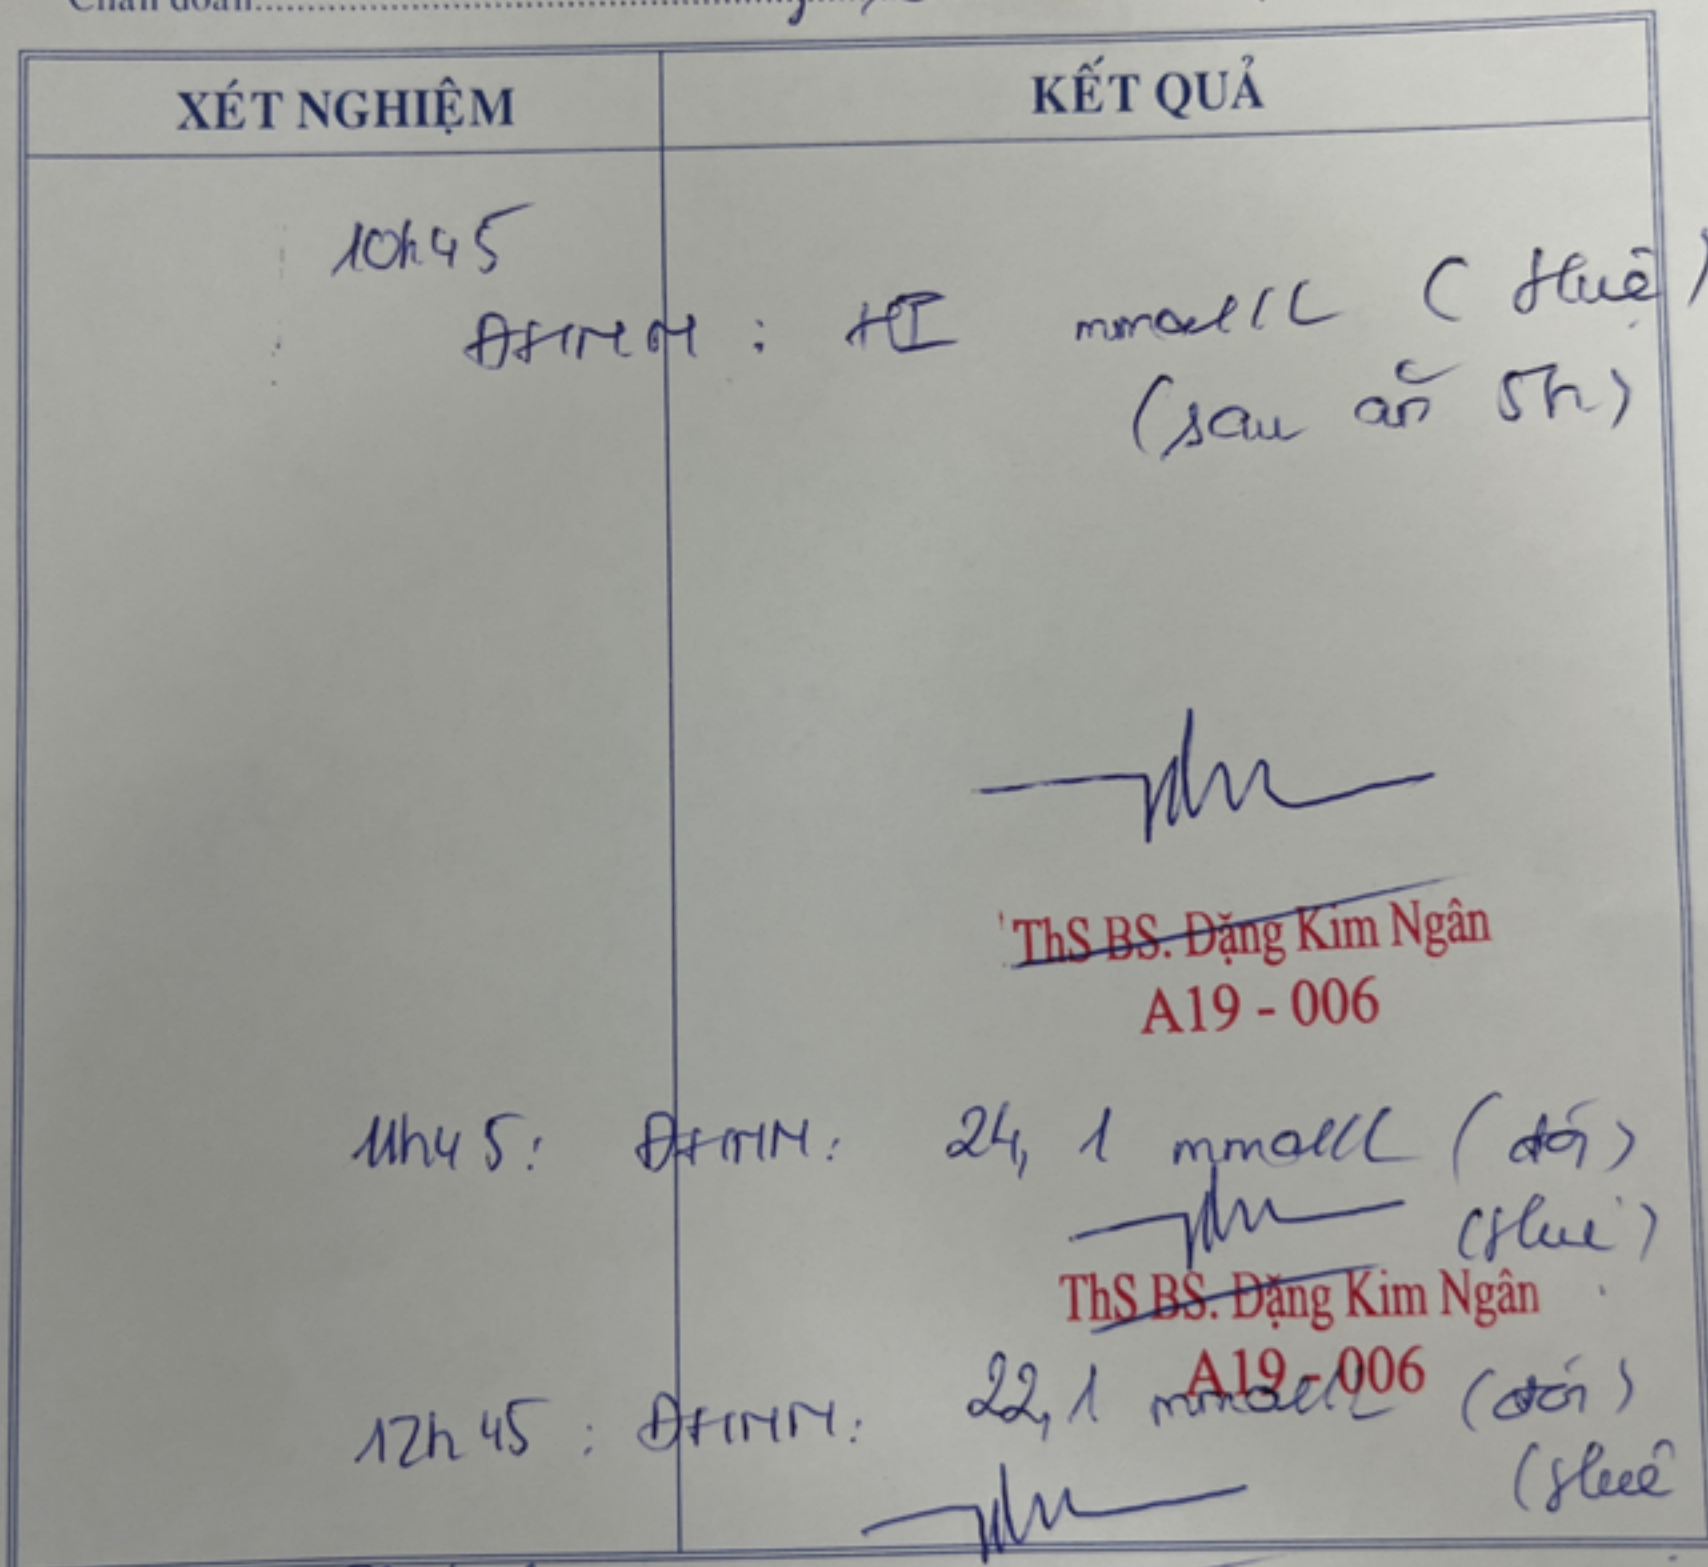 Chẩn đoán
XÉT NGHIỆM KẾT QUẢ
10h45
ĐHMM : HI mmol/L (Huệ)
(sau ăn 5h)
ThS BS. Đặng Kim Ngân
A19 - 006
11h45: ĐHMM: 24,1 mmol/L (đói)
(Huệ)
ThS BS. Đặng Kim Ngân
A19 - 006
12h45 : ĐHMM: 22,1 mmol/L (đói)
(Huệ